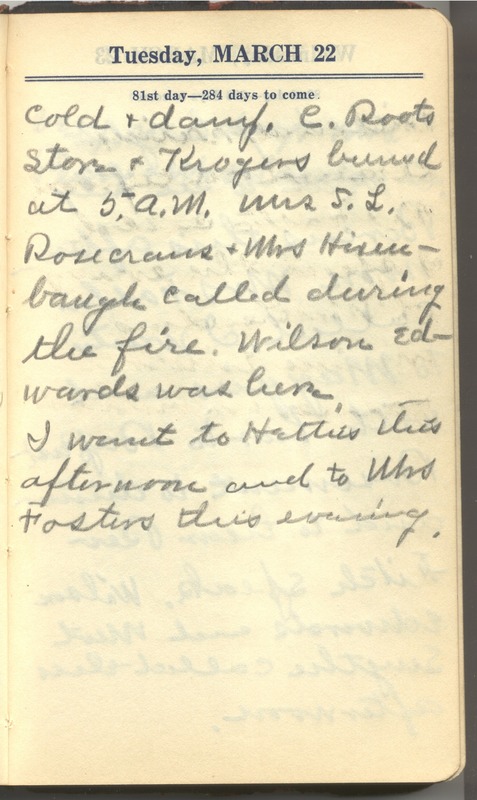 Tuesday, MARCH 22
81st day—284 days to come.
Cold + damp. C. Roots
Store + Krogers burned
at 5. A.M. Mrs S. L.
Rosecrans + Mrs Hisen-
baugh called during
the fire. Wilson Ed-
wards was here.
I went to Hatties this
afternoon and to Mrs
Fosters this evening.